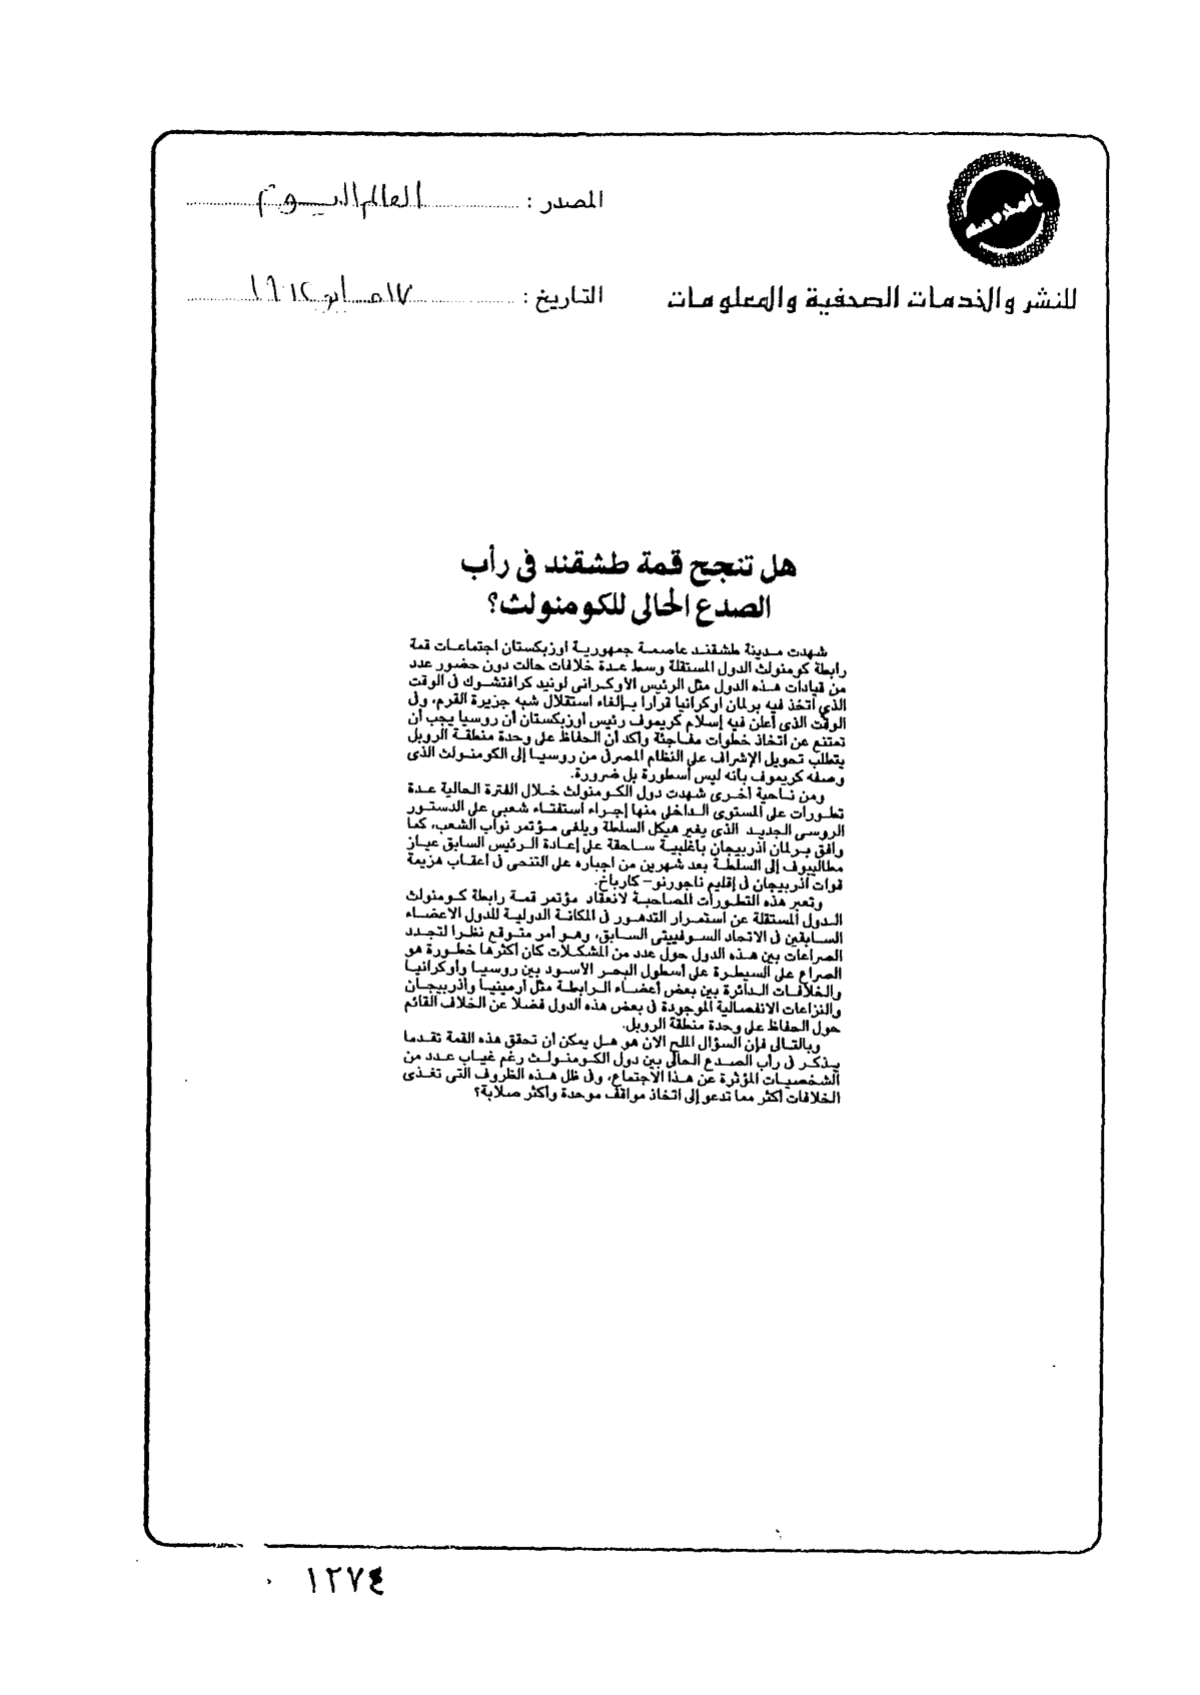 المصدر : العالم اليوم
للنشر والخدمات الصحفية والمعلومات
التاريخ : ١٧ مايو
هل تنجح قمة طشقند فى رأب
الصدع الحالى للكومنولث؟
شهدت مدينة طشقند عاصمة جمهورية اوزبكستان اجتماعات قمة
رابطة كومنولث الدول المستقلة وسط عدة خلافات حالت دون حضور عدد
من قيادات هذه الدول مثل الرئيس الأوكرانى لونيد كرافتشوك فى الوقت
الذي اتخذ فيه برلمان اوكرانيا قرارا بإلغاء استقلال شبه جزيرة القرم، وفى
الوقت الذى أعلن فيه إسلام كريموف رئيس أوزبكستان أن روسيا يجب أن
تمتنع عن اتخاذ خطوات مفاجئة وأكد أن الحفاظ على وحدة منطقة الروبل
يتطلب تحويل الإشراف على النظام المصرفى من روسيا إلى الكومنولث الذى
وصفه كريموف بانه ليس أسطورة بل ضرورة.
ومن ناحية اخرى شهدت دول الكومنولث خلال الفترة الحالية عدة
تطورات على المستوى الداخلى منها إجراء استفتاء شعبى على الدستور
الروسى الجديد الذى يغير هيكل السلطة ويلغى مؤتمر نواب الشعب، كما
وافق برلمان أذربيجان بأغلبية ساحقة على إعادة الرئيس السابق عياز
مطالييوف إلى السلطة بعد شهرين من اجباره على التنحى فى أعقاب هزيمة
قوات أذربيجان فى إقليم ناجورنو– كارباخ.
وتعبر هذه التطورات المصاحبة لانعقاد مؤتمر قمة رابطة كومنولث
الدول المستقلة عن استمرار التدهور فى المكانة الدولية للدول الاعضاء
السابقين فى الاتحاد السوفييتى السابق، وهو أمر متوقع نظرا لتجدد
الصراعات بين هذه الدول حول عدد من المشكلات كان أكثرها خطورة هو
الصراع على السيطرة على أسطول البحر الأسود بين روسيا وأوكرانيا
والخلافات الدائرة بين بعض أعضاء الرابطة مثل أرمينيا وأذربيجان
والنزاعات الانفصالية الموجودة فى بعض هذه الدول فضلا عن الخلاف القائم
حول الحفاظ على وحدة منطقة الروبل.
وبالتالى فإن السؤال الملح الان هو هل يمكن أن تحقق هذه القمة تقدما
يذكر فى رأب الصدع الحالى بين دول الكومنولث رغم غياب عدد من
الشخصيات المؤثرة عن هذا الاجتماع، وفى ظل هذه الظروف التى تغذى
الخلافات أكثر مما تدعو إلى اتخاذ مواقف موحدة وأكثر صلابة؟
١٢٧٤